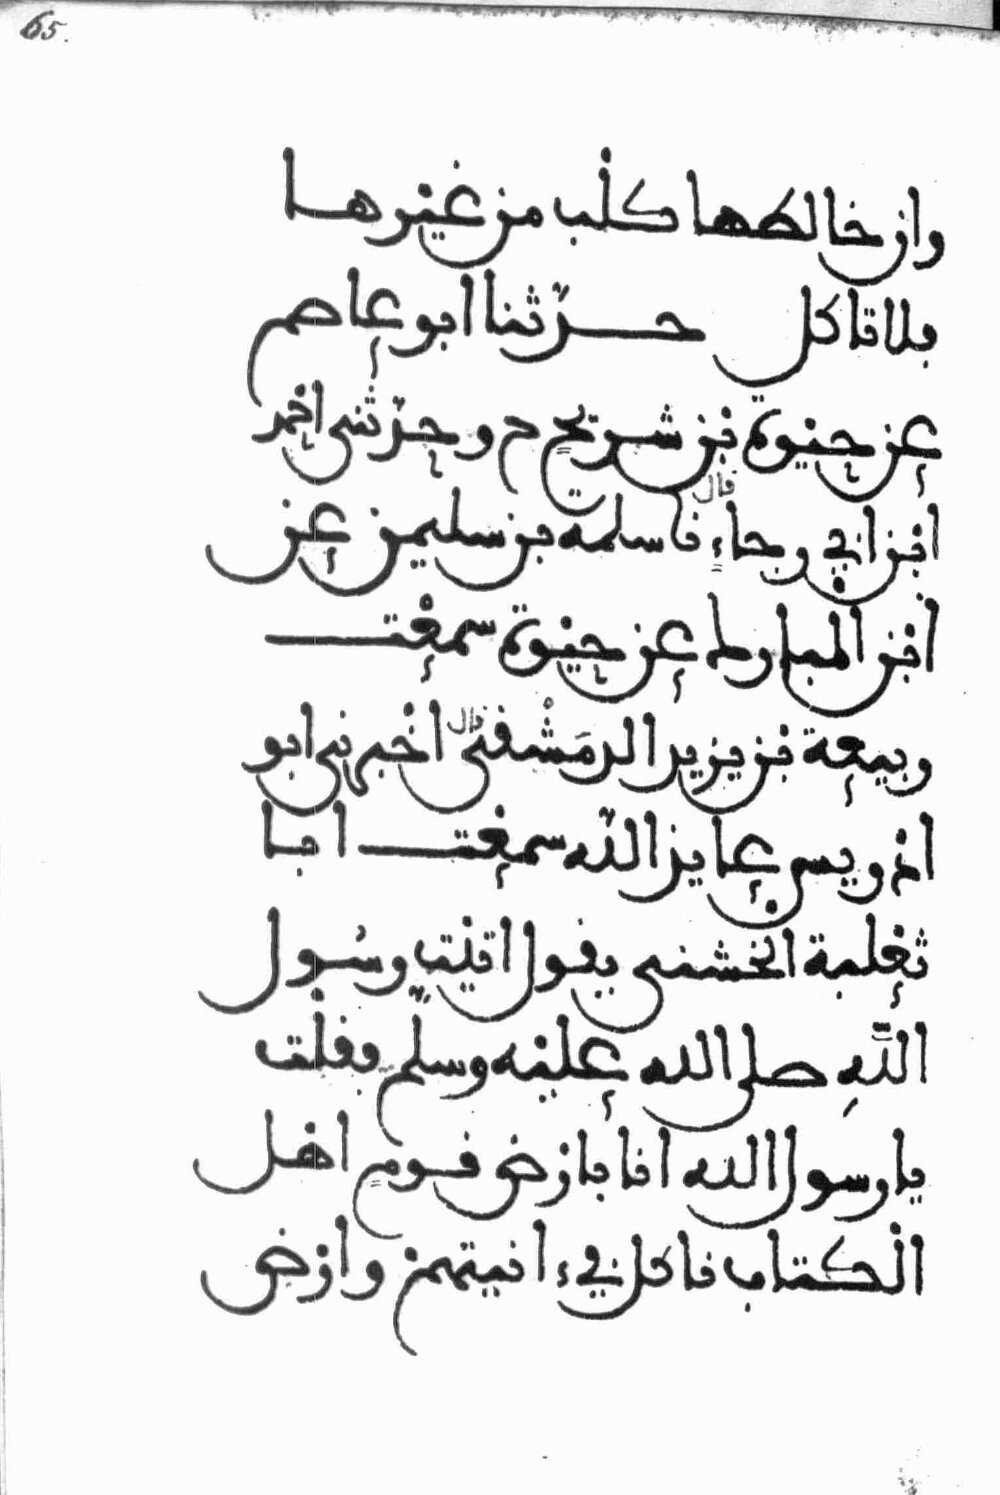 65.
وان خالطها كلب من غيرها
فلا تاكل حدثنا ابو عاصم
عن حيوة بن شريح ح وحدثني احمد
ابن ابي رجاء قال نا سلمه بن سليمن عن
ابن المبارك عن حيوة سمعت
ربيعة بن يزيد الدمشقي قال اخبرني ابو
ادريس عايذ الله سمعت ابا
ثعلبة الخشني يقول اتيت رسول
الله صلى الله عليه وسلم فقلت
يا رسول الله انا بارض قوم اهل
الكتاب ناكل في ءانيتهم وارض